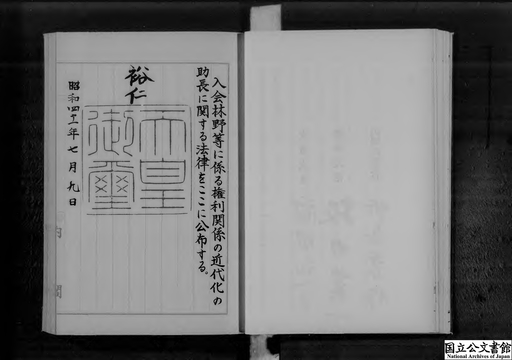 入会林野等に係る権利関係の近代化の
助長に関する法律をここに公布する。
裕仁
天皇
御璽
昭和四十一年七月九日
国立公文書館
National Archives of Japan